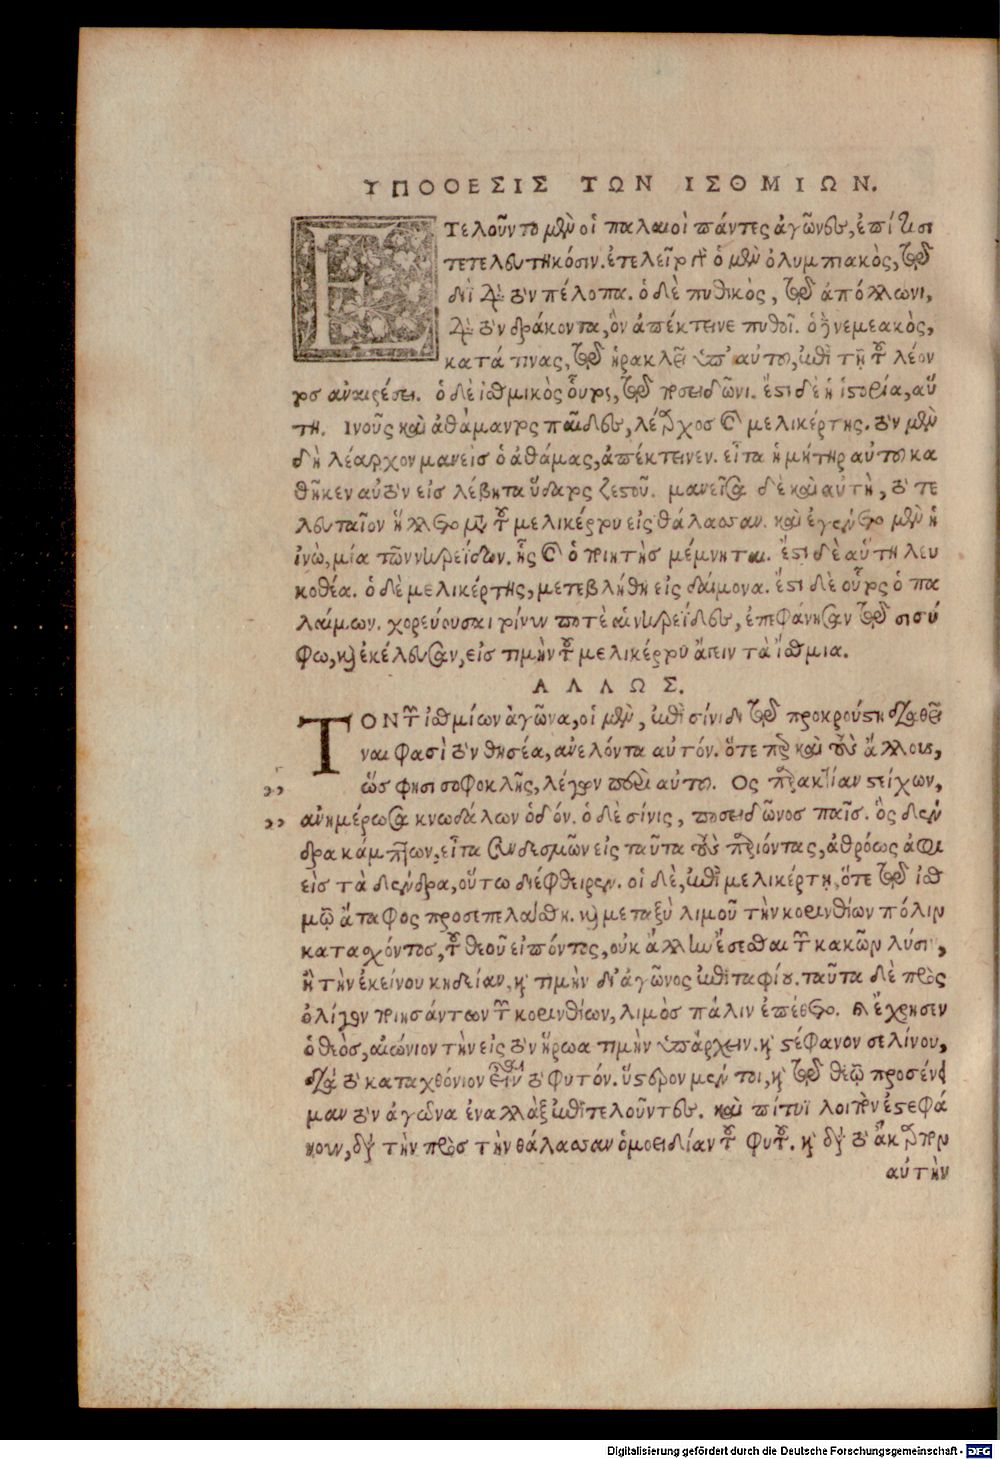 ΥΠΟΘΕΣΙΣ ΤΩΝ ΙΣΘΜΙΩΝ.
ΕΤελοῦντο μὲν οἱ παλαιοὶ πάντες ἀγῶνες, ἐπί τισι
τετελευτηκόσιν. ἐτελεῖτο γὰρ ὁ μὲν ὀλυμπιακὸς, τῷ
διῒ διὰ τὸν πέλοπα. ὁ δὲ πυθικὸς, τῷ ἀπόλλωνι,
διὰ τὸν δράκοντα, ὃν ἀπέκτεινε πυθοῖ. ὁ δὲ νεμεακὸς,
κατά τινας, τῷ ἡρακλεῖ ὑπ' αὐτοῦ, ἐπὶ τῇ τοῦ λέον
τος ἀναιρέσει. ὁ δὲ ἰσθμικὸς οὗτος, τῷ ποσειδῶνι. ἔστι δὲ ἡ ἱστορία, αὕ
τη. Ινοῦς καὶ ἀθάμαντος παῖδες, λέαρχος καὶ μελικέρτης. τὸν μὲν
δὴ λέαρχον μανεὶς ὁ ἀθάμας, ἀπέκτεινεν. εἶτα ἡ μήτηρ αὐτοῦ κα
θῆκεν αὐτὸν εἰς λέβητα ὕδατος ζεστοῦ. μανεῖσα δὲ καὶ αὐτὴ, τὸ τε
λευταῖον ἥλλετο μετὰ τοῦ μελικέρτου εἰς θάλασσαν. καὶ ἐγένετο μὲν ἡ
ἰνὼ, μία τῶν νηρεΐδων. ἧς καὶ ὁ ποιητὴς μέμνηται. ἔστι δὲ αὕτη λευ
κοθέα. ὁ δὲ μελικέρτης, μετεβλήθη εἰς δαίμονα. ἔστι δὲ οὗτος ὁ πα
λαίμων. χορεύουσαι τοίνυν ποτὲ αἱ νηρεΐδες, ἐπεφάνησαν τῷ σισύ
φῳ, καὶ ἐκέλευσαν, εἰς τιμὴν τοῦ μελικέρτου ἄγειν τὰ ἴσθμια.
ΑΛΛΩΣ.
ΤΟΝ τῶν ἰσθμίων ἀγῶνα, οἱ μὲν, ἐπὶ σίνιδι τῷ προκρούστῃ διαθεῖ
ναι φασὶ τὸν θησέα, ἀνελόντα αὐτόν. ὅτε περ καὶ τοὺς ἄλλους,
ὥς φησι σοφοκλῆς, λέγων περὶ αὐτοῦ. Ος παρακτίαν στείχων,
ἀνημέρωσα κνωδάλων ὁδόν. ὁ δὲ σίνις, ποσειδῶνος παῖς. ὃς δέν
δρα κάμπτων, εἶτα συνδεσμῶν εἰς ταῦτα τοὺς παριόντας, ἀθρόως ἀφίει
εἰς τὰ δένδρα, οὕτω διέφθειρεν. οἱ δὲ, ἐπὶ μελικέρτῃ, ὅτε τῷ ἰσθ
μῷ ἄταφος προσεπελάσθη. καὶ μεταξὺ λιμοῦ τὴν κορινθίων πόλιν
κατασχόντος, τοῦ θεοῦ εἰπόντος, οὐκ ἄλλην ἔσεσθαι τῶν κακῶν λύσιν,
ἢ τὴν ἐκείνου κηδείαν, καὶ τιμὴν δι' ἀγῶνος ἐπιταφίου. ταῦτα δὲ πρὸς
ὀλίγον ποιησάντων τῶν κορινθίων, λιμὸς πάλιν ἐπέθετο. ἔχρησεν
ὁ θεὸς, αἰώνιον τὴν εἰς τὸν ἥρωα τιμὴν ὑπάρχειν. καὶ στέφανον σελίνου,
διὰ τὸ καταχθόνιον εἶναι τὸ φυτόν. ὕστερον μέν τοι, καὶ τῷ θεῷ προσένει
μαν τὸν ἀγῶνα ἐναλλὰξ ἐπιτελοῦντες. καὶ πίτυϊ λοιπὸν ἐστεφά
νουν, διὰ τὴν πρὸς τὴν θάλασσαν ὁμοειδίαν τοῦ φυτοῦ. καὶ διὰ τὸ ἄκαρπον
αὐτὴν
Digitalisierung gefördert durch die Deutsche Forschungsgemeinschaft - DFG